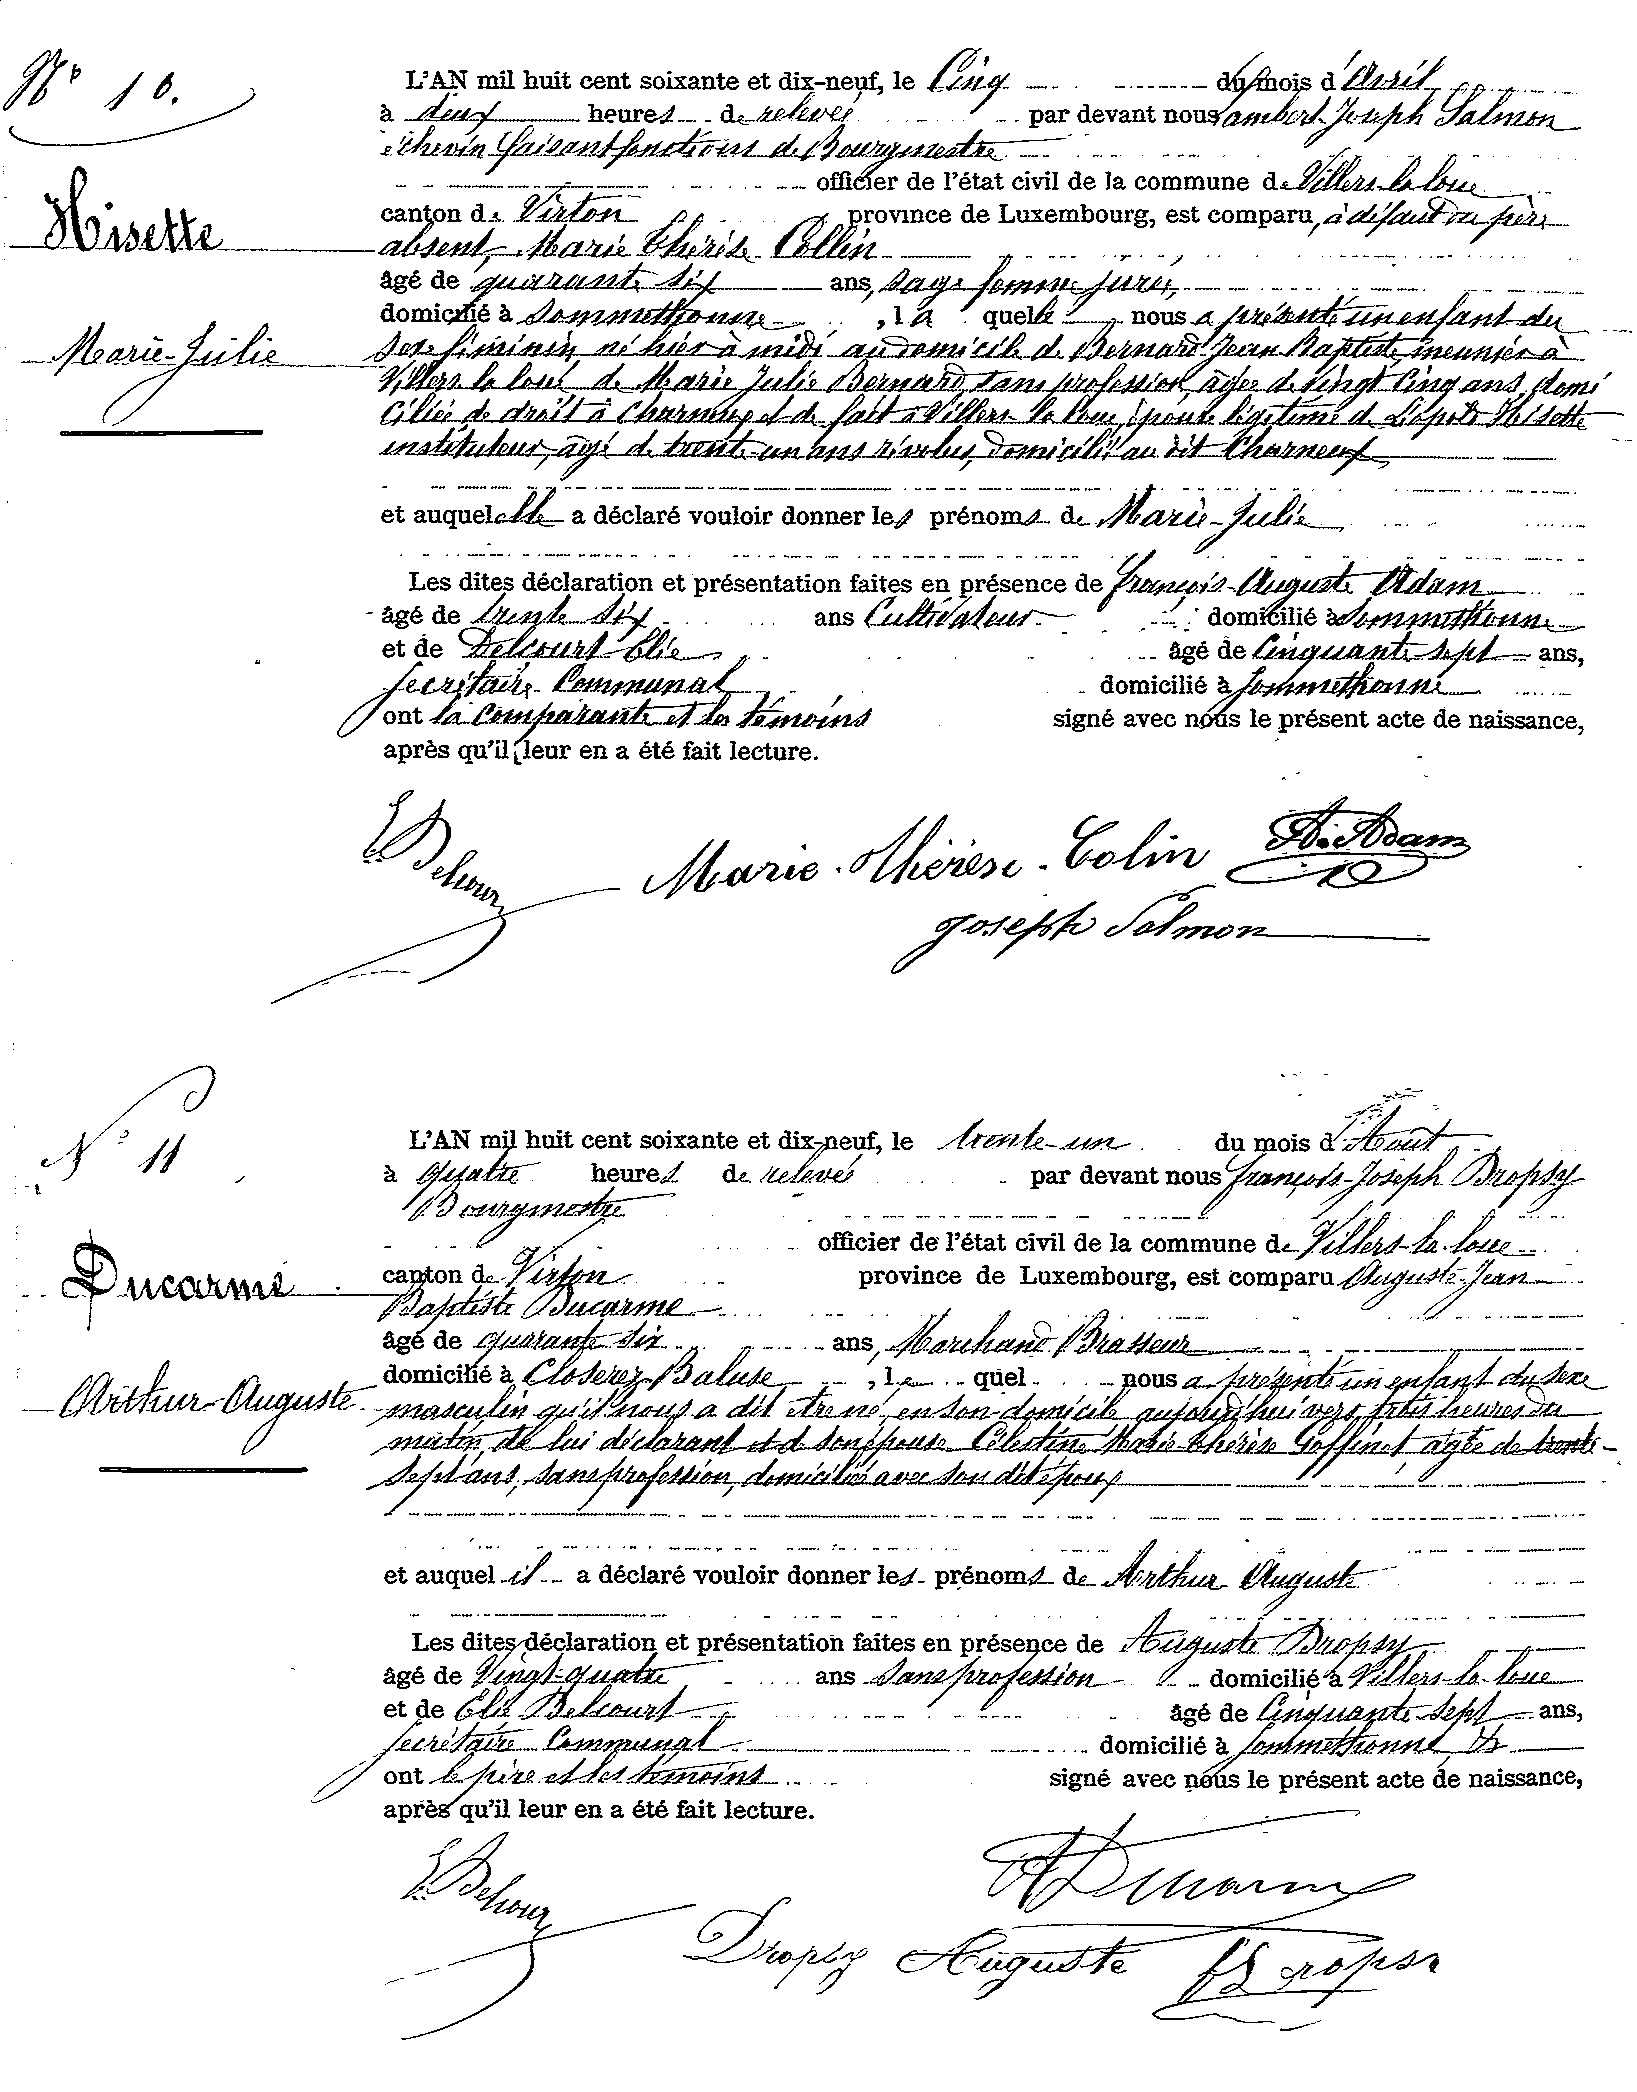 N° 10.
Hisette
Marie-Julie
L'AN mil huit cent soixante et dix-neuf, le Cinq du mois d'Avril
à deux heures de relevée par devant nous Lambert-Joseph Salmon
échevin faisant fonctions de Bourgmestre
officier de l'état civil de la commune de Villers-la-loue
canton de Virton province de Luxembourg, est comparu, à défaut du père
absent, Marie Thérèse Collin
âgé de quarante six ans, sage femme jurée,
domicilié à Sommethonne, laquelle nous a présenté un enfant du
sexe féminin, né hier à midi au domicile de Bernard Jean Baptiste, meunier à
Villers la loue, de Marie Julie Bernard, sans profession, âgée de vingt cinq ans, domi
ciliée de droit à Charneux et de fait à Villers-la loue, épouse légitime de Léopold Hisette
instituteur, âgé de trente-un ans révolus, domicilié au dit Charneux
et auquel elle a déclaré vouloir donner les prénoms de Marie-Julie
Les dites déclaration et présentation faites en présence de François-Auguste Adam
âgé de trente six ans Cultivateur domicilié à Sommethonne
et de Delcourt Elie âgé de Cinquante sept ans,
secrétaire Communal domicilié à Sommethonne
ont la comparante et les témoins signé avec nous le présent acte de naissance,
après qu'il leur en a été fait lecture.
E Delcour Marie-Thérèse-Colin A. Adam
Joseph Salmon
N° 11
Ducarme
Arthur-Auguste
L'AN mil huit cent soixante et dix-neuf, le trente-un du mois d'Août
à quatre heures de relevée par devant nous François-Joseph Dropsy
Bourgmestre
officier de l'état civil de la commune de Villers-la-loue
canton de Virton province de Luxembourg, est comparu Auguste-Jean
Baptiste Ducarme
âgé de quarante six ans, Marchand Brasseur
domicilié à Closerez-Baluse, lequel nous a présenté un enfant du sexe
masculin qu'il nous a dit être né, en son domicile aujourd'hui vers trois heures du
matin, de lui déclarant et de son épouse Célestine Marie Thérèse Goffinet, âgée de trente-
sept ans, sans profession, domiciliée avec son dit époux
et auquel il a déclaré vouloir donner les prénoms de Arthur Auguste
Les dites déclaration et présentation faites en présence de Auguste Dropsy
âgé de Vingt-quatre ans sans profession domicilié à Villers-la-loue
et de Elie Delcourt âgé de Cinquante-sept ans,
secrétaire Communal domicilié à Sommethonne
ont le père et les témoins signé avec nous le présent acte de naissance,
après qu'il leur en a été fait lecture.
E Delcour A Ducarme
Dropsy Auguste FJ Dropsy